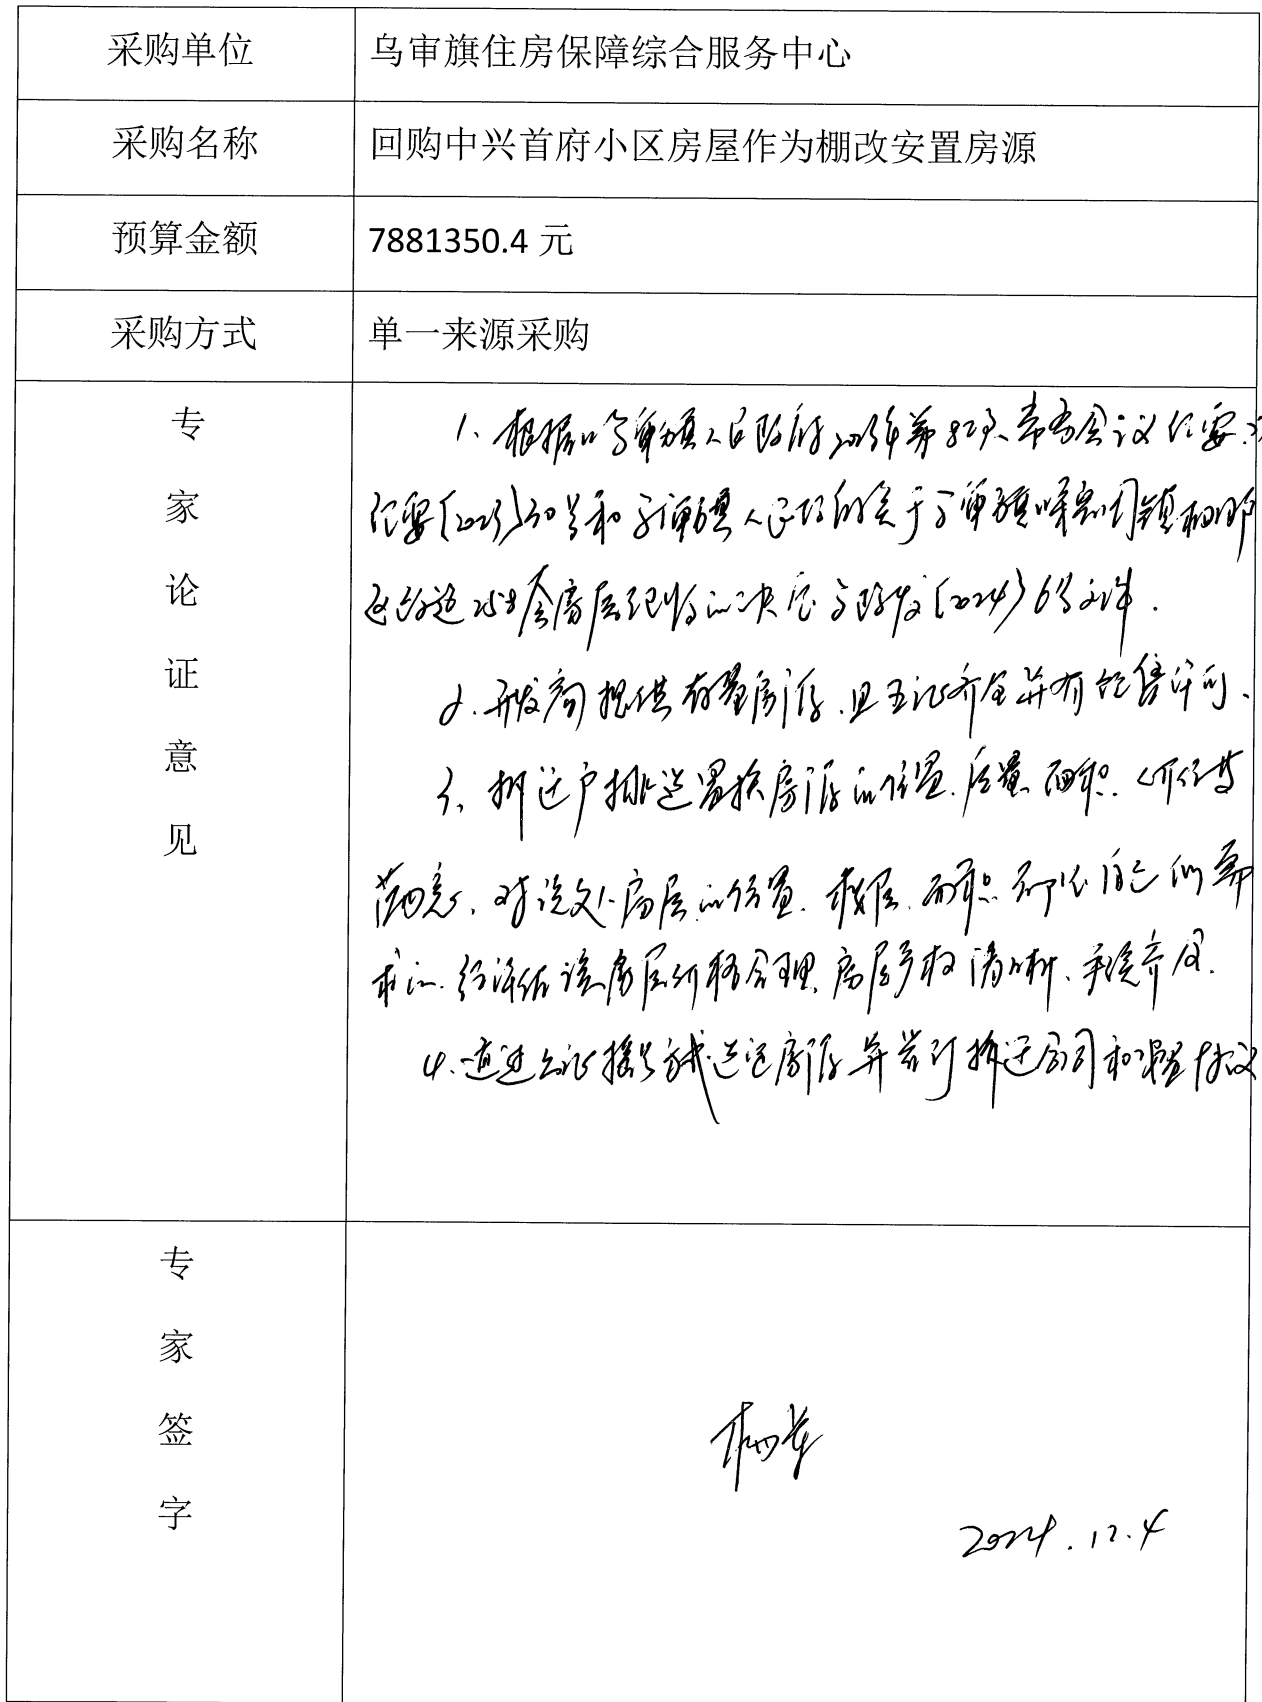 采购单位 乌审旗住房保障综合服务中心
采购名称 回购中兴首府小区房屋作为棚改安置房源
预算金额 7881350.4 元
采购方式 单一来源采购
专家论证意见
1、根据乌审旗人民政府2023年第8次常务会议纪要
纪要〔2023〕30号和乌审旗人民政府关于乌审旗嘎鲁图镇
258套房屋征收的决定 乌政发〔2024〕6号文件.
2.开发商提供存量房源.且五证齐全并有销售许可、
3、拆迁户挑选置换房源的位置.质量.面积.价格等
满意、对该处房屋的位置.楼层.面积都以自己的需
求.经评估该房屋价格合理.房屋产权清晰、手续齐全.
4.通过公证摇号方式选定房源并签订拆迁合同和安置协议
专家签字
2024.12.4